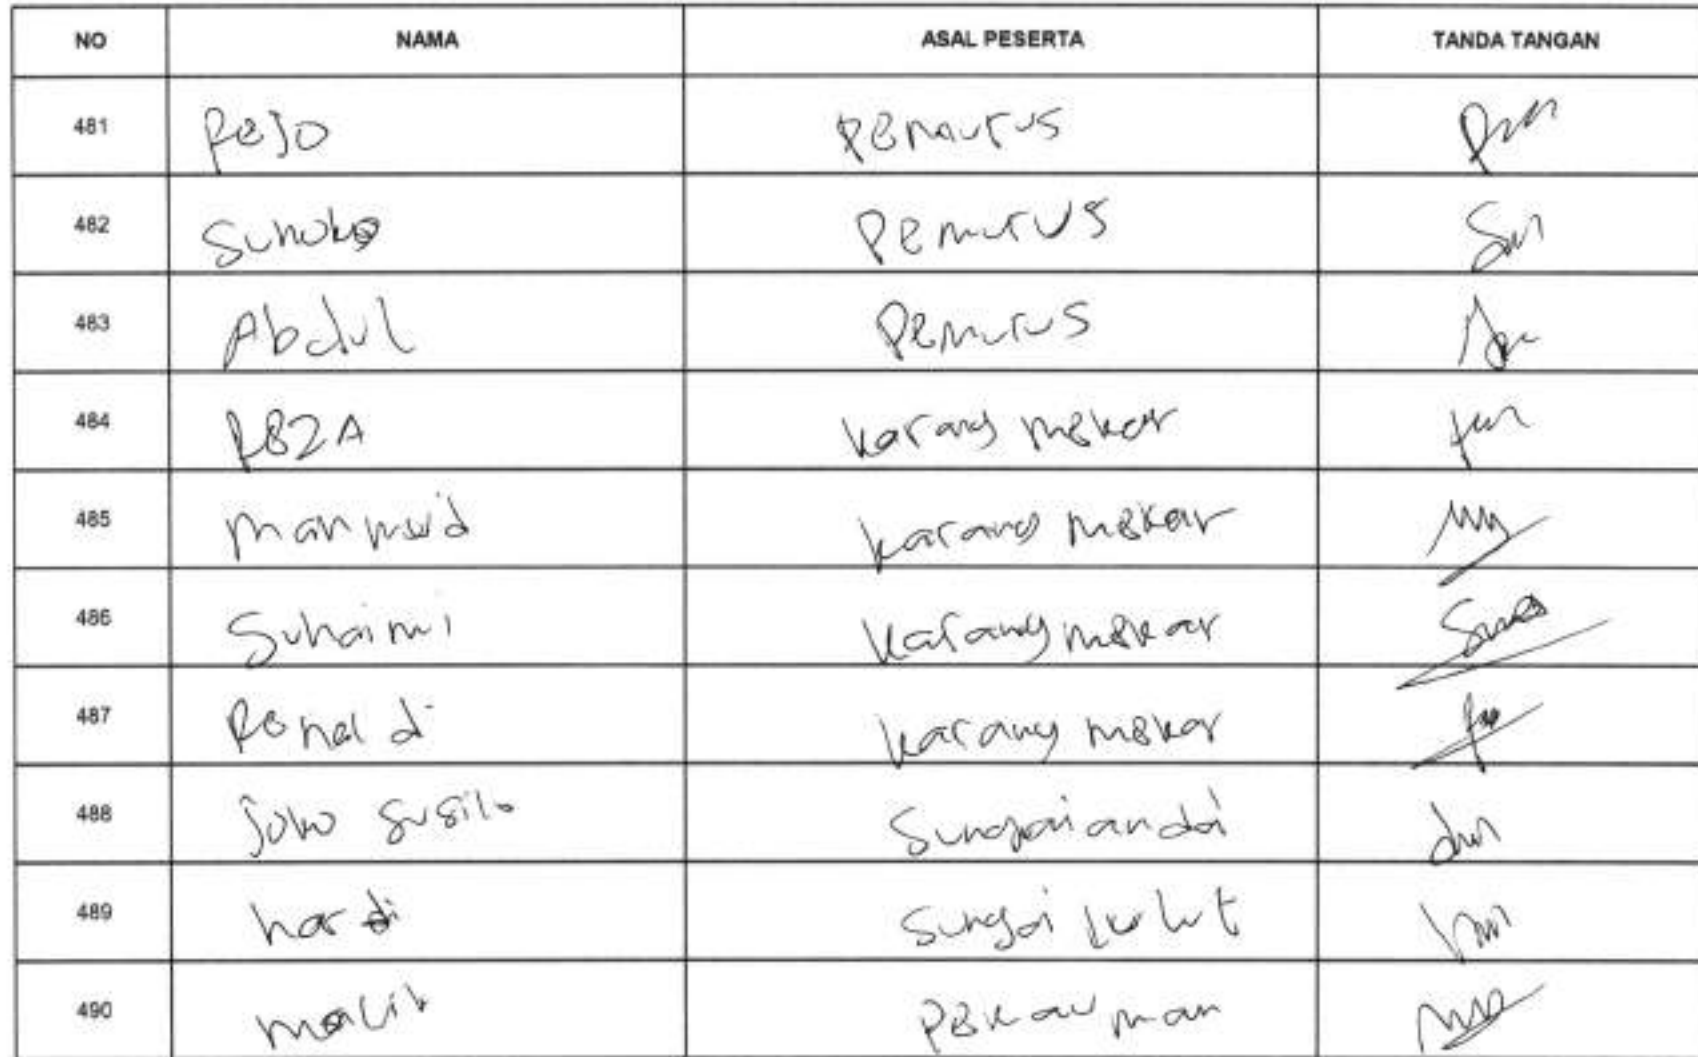 NO NAMA ASAL PESERTA TANDA TANGAN
481 Rejo Pemurus
482 Pemurus
483 Abdul Pemurus
484 REZA karang mekar
485 karang mekar
486 Suhaimi karang mekar
487 Renaldi karang mekar
488 Joko Susilo Sungai andai
489 hardi Sungai lulut
490 malik Pekauman